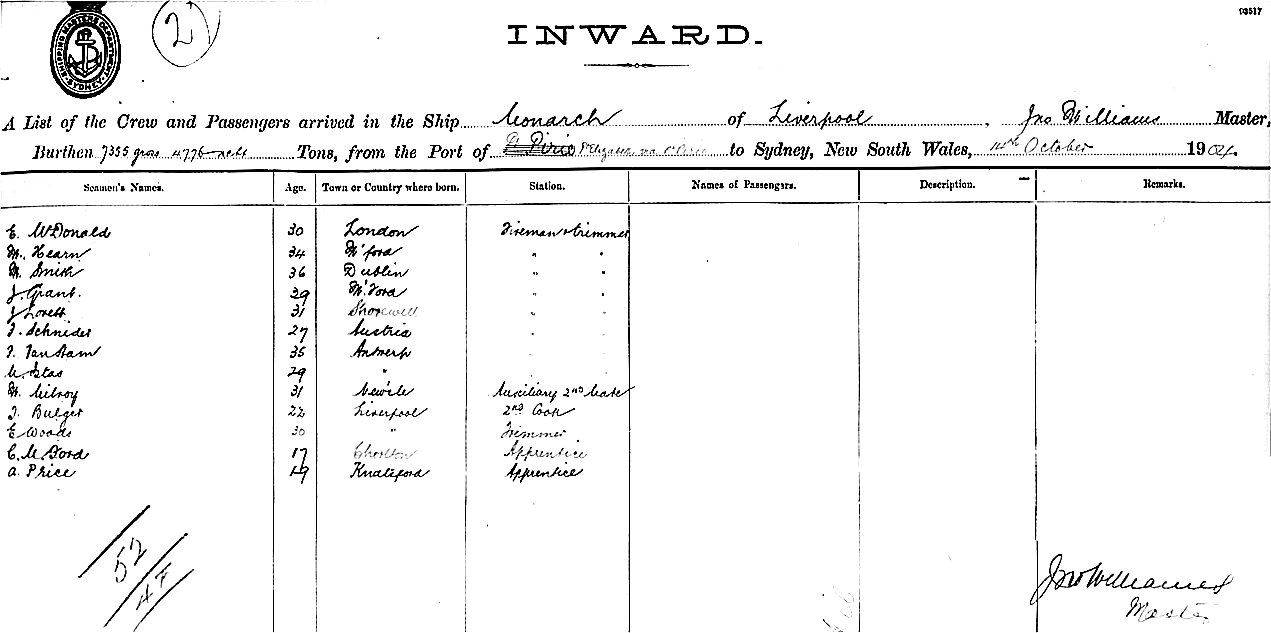 93517
SHIPPING MASTER'S DEPARTMENT SYDNEY
2
INWARD.
A List of the Crew and Passengers arrived in the Ship Monarch of Liverpool, Jno Williams Master,
Burthen 7355 gross 4776 nett Tons, from the Port of Pt Elizabeth via Pt Pirie to Sydney, New South Wales, 14th October 1904
Seamen's Names. Age. Town or Country where born. Station. Names of Passengers. Description. Remarks.
E. McDonald 30 London Fireman & trimmer
M. Hearn 34 W'ford " "
M. Smith 36 Dublin " "
J. Grant. 29 W'ford " "
J Lovett 31 Shorewell " "
J. Schneider 27 Austria " "
J. Van Ham 35 Antwerp " "
29 "
W. Milroy 31 Auxiliary 2nd Mate
J. Bulger 22 Liverpool 2nd Cook
E Woods 30 " Trimmer
C. M. Ford 17 Chorlton Apprentice
A. Price 19 Knutsford Apprentice
52
47
Jno Williams
Master